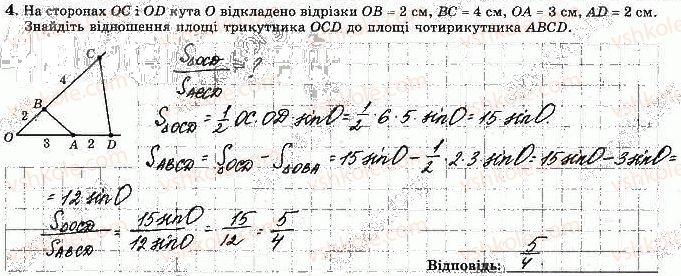 4. На сторонах OC і OD кута O відкладено відрізки OB = 2 см, BC = 4 см, OA = 3 см, AD = 2 см.
Знайдіть відношення площі трикутника OCD до площі чотирикутника ABCD.
C
4
B
2
O 3 A 2 D
S△OCD / SABCD = ?
S△OCD = 1/2 OC · OD sinO = 1/2 · 6 · 5 · sinO = 15 sinO.
SABCD = S△OCD − S△OBA = 15 sinO − 1/2 · 2 · 3 sinO = 15 sinO − 3 sinO =
= 12 sinO
S△OCD / SABCD = 15 sinO / 12 sinO = 15/12 = 5/4
Відповідь: 5/4